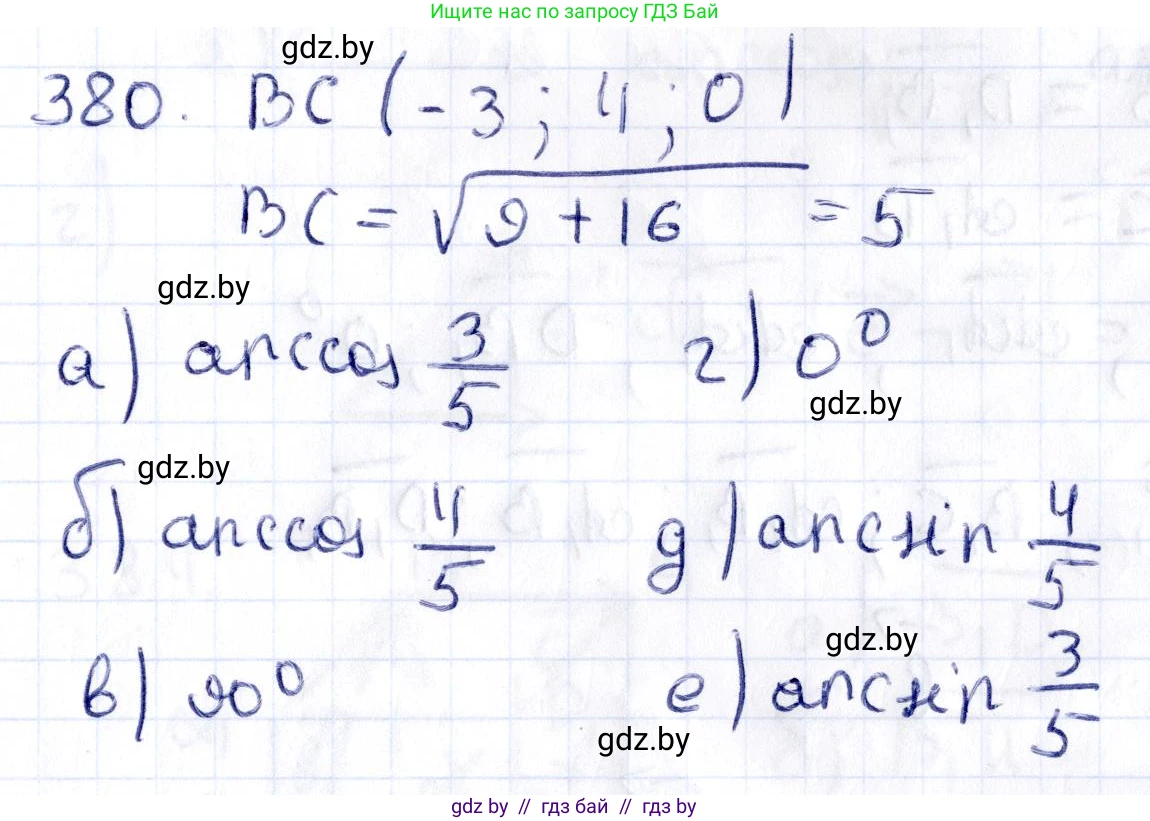 Ищите нас по запросу ГДЗ Бай
gdz.by
380. BC (-3; 4; 0)
BC = √9+16 = 5
gdz.by
а) arccos 3/5 г) 0°
gdz.by
gdz.by
б) arccos 4/5 д) arcsin 4/5
gdz.by
в) 90° е) arcsin 3/5
gdz.by
gdz by // гдз бай // гдз by